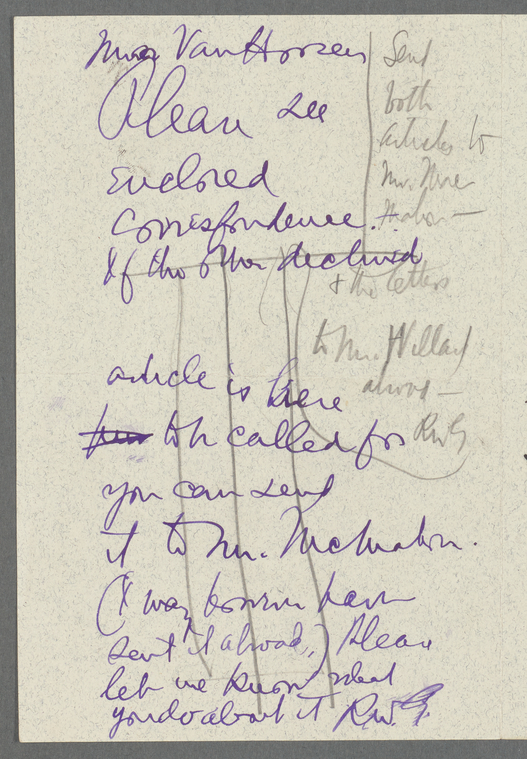 Miss Van Hoosen
Please see
enclosed
correspondence.
If the other declined
article is here
to be called for
you can send
it to Mr. McMahon.
(I may however have
sent it abroad.) Please
let me know what
you do about it RWG.
Sent
both
articles to
Mr. Mc
Mahon —
& the letters
to Mr. Villard
abroad —
RWG